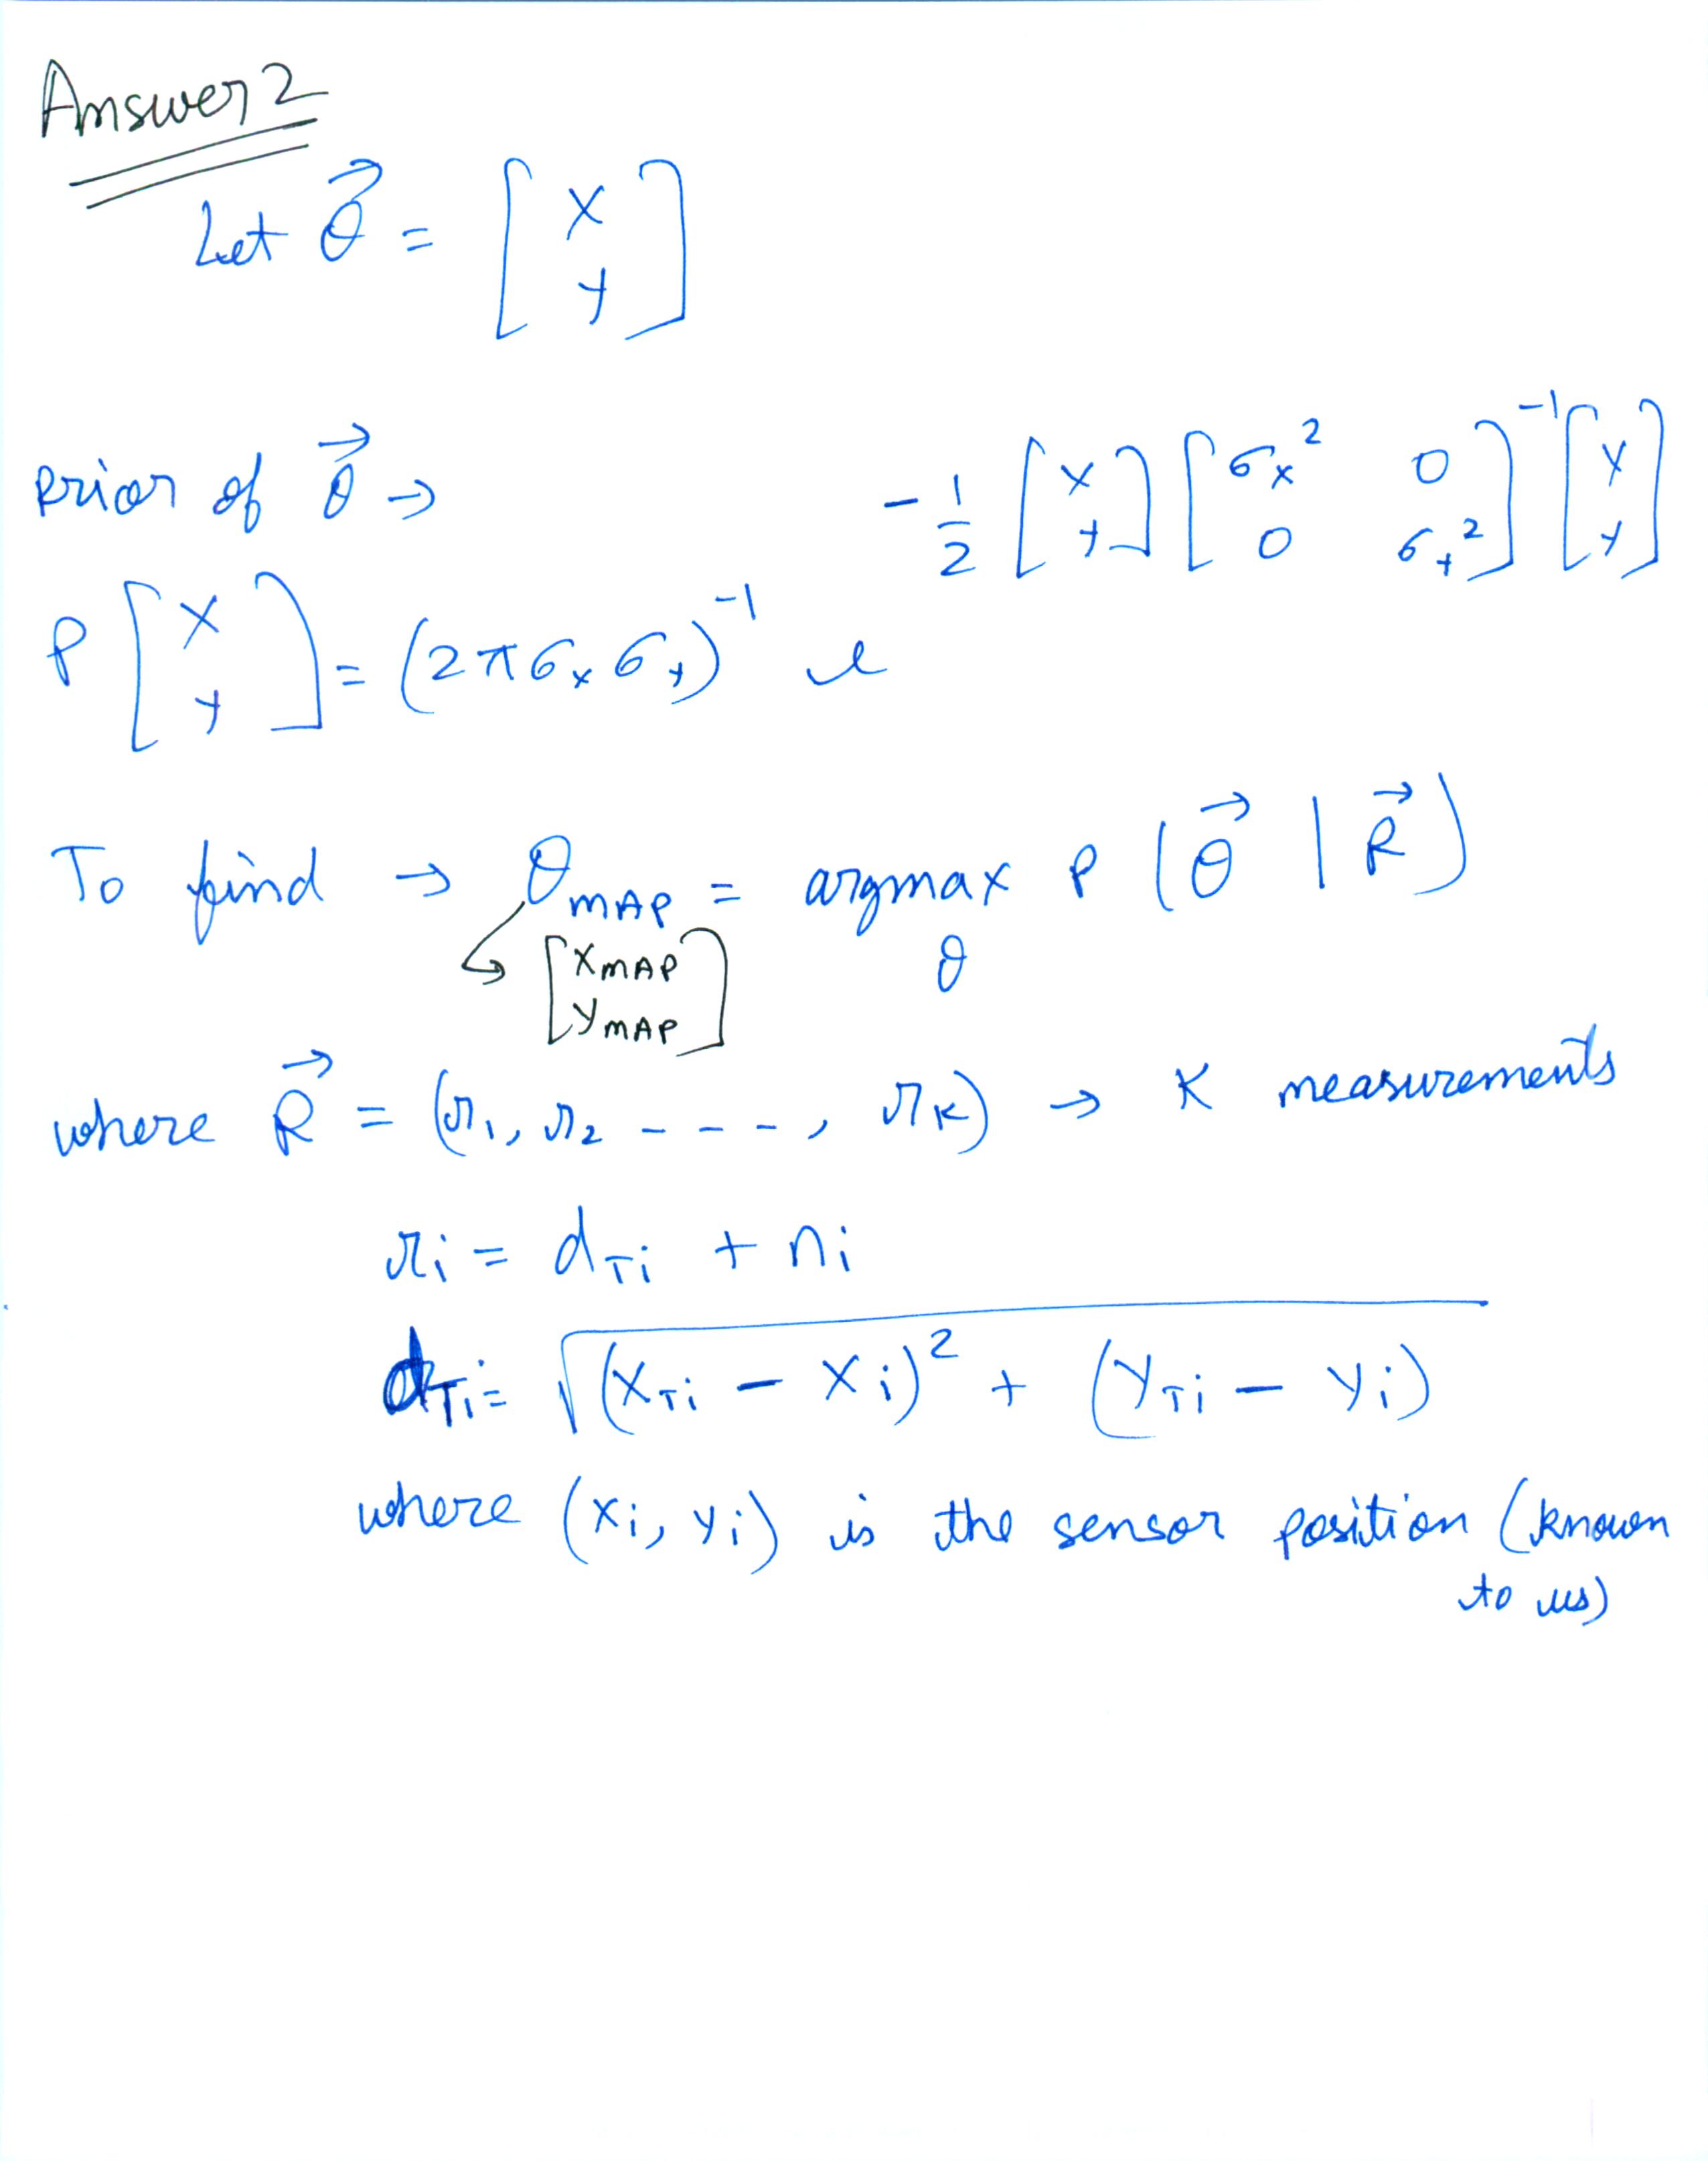 Answer 2
Let θ⃗ = [ x y ]
prior of θ⃗ →
P [ x y ] = (2πσx σy)^-1 e^ -1/2 [ x y ] [ σx^2 0 0 σy^2 ]^-1 [ x y ]
To find → θMAP = argmax θ P ( θ⃗ | R⃗ )
↳ [ xMAP yMAP ]
where R⃗ = (r1, r2 - - - -, rK) → K measurements
ri = dTi + ni
dTi = √(xTi - xi)^2 + (yTi - yi)
where (xi, yi) is the sensor position (known
to us)